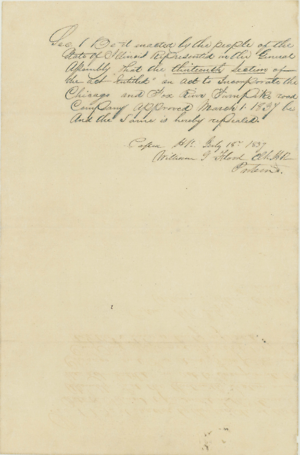 Sec. 1 Be it enacted by the people of the
State of Illinois Represented in the General
Assembly that the thirteenth section of
the Act Entitled "an Act to Incorporate the
Chicago and Fox River Turnpike road
Company Approved March 1 1837 be
And the Same is hereby repealed.
July 15th 1837
William